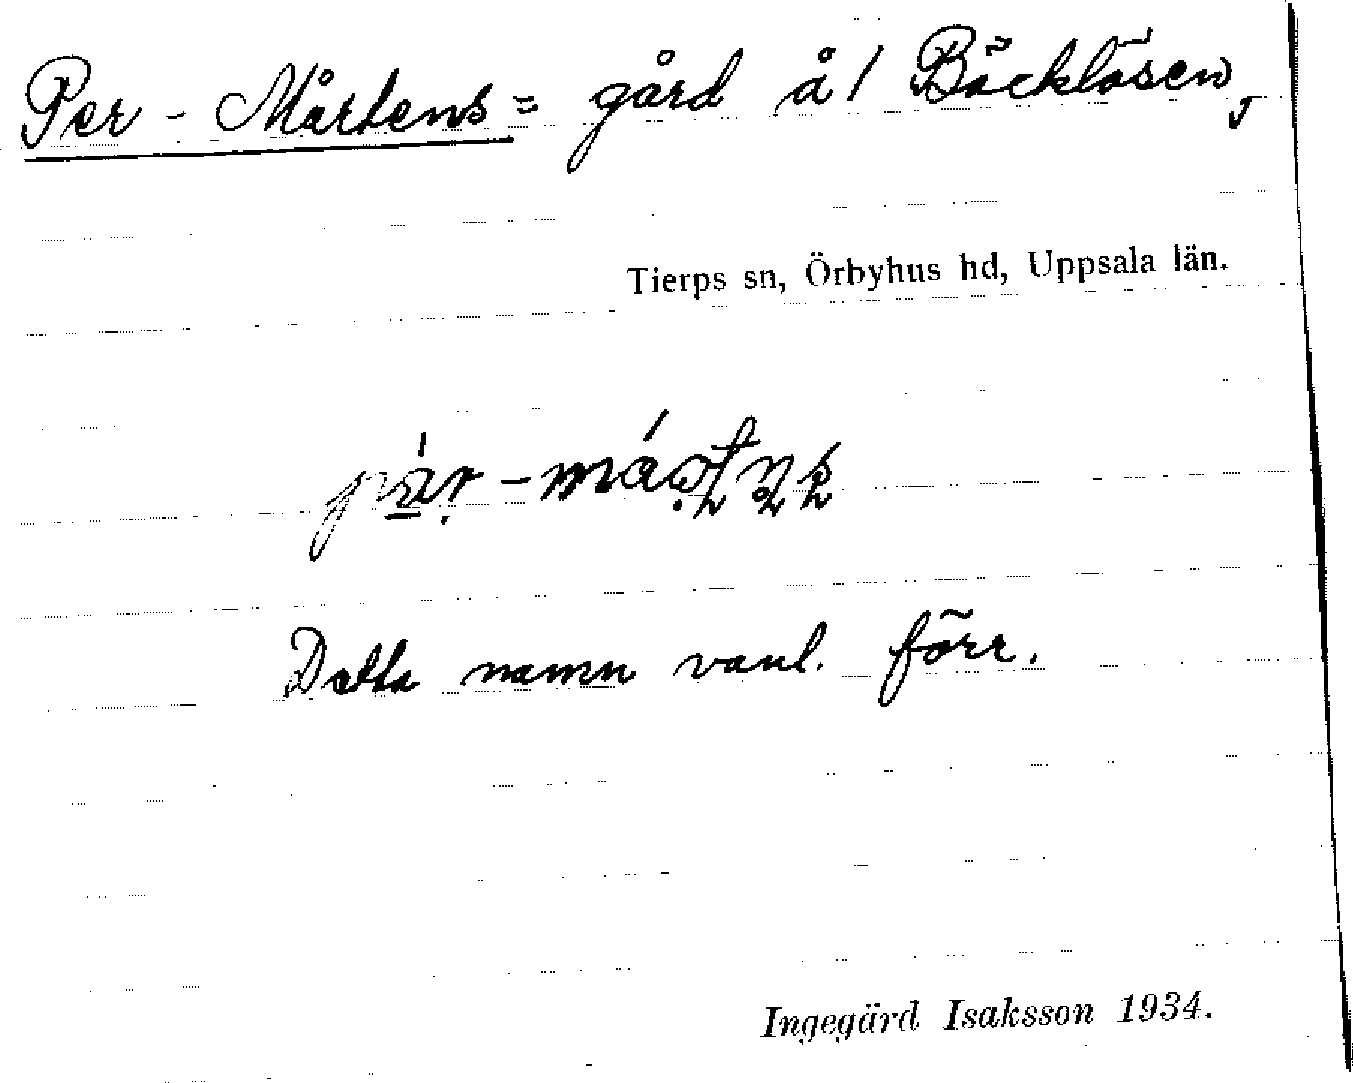 Per-Mårtens= gård å 1 Bäcklösen,
Tierps sn, Örbyhus hd, Uppsala län.
Detta namn vanl. förr.
Ingegärd Isaksson 1934.